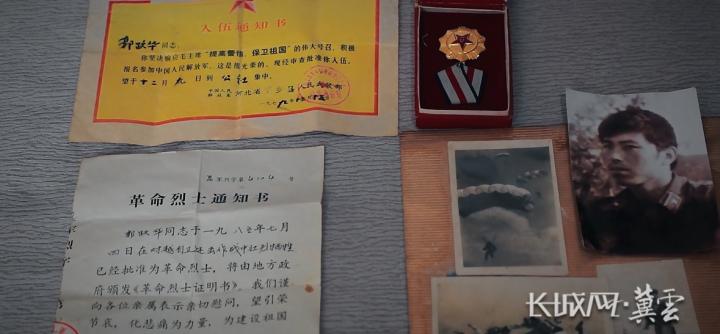 入伍通知书
郭跃华同志:
你坚决响应毛主席"提高警惕、保卫祖国"的伟大号召,积极
报名参加中国人民解放军。这是很光荣的。现经审查批准你入伍。
望于十二月九日到公社集中。
中国人民
解放军
河北省
人民武装部
革命烈士通知书
郭跃华同志于一九八五年七月
四日在对越自卫还击作战中壮烈牺牲
已经批准为革命烈士,将由地方政
府颁发《革命烈士证明书》。我们谨
向各位亲属表示亲切慰问,望引荣
节哀,化悲痛为力量,为建设祖国
长城网·冀云